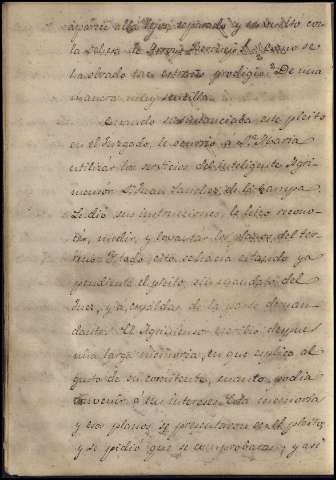 aparece allá lejos, separado y revuelto con
la dehesa de ¿Como se
ha obrado tan extraño prodigio? De una
manera muy sencilla.
Cuando se sustanciaba este pleito
en el Juzgado, le ocurrió a Dª María
utilizar los servicios del inteligente Agri-
mensor D. Juan Sanchez de la Campa.
Le dió sus instrucciones, le hizo recono-
cer, medir, y levantar los planos del ter-
reno. Y todo esto se hacía estando ya
pendiente el pleito, sin mandato del
Juez, y a espaldas de la parte deman-
dante. El Agrimensor escribió despues
una larga memoria, en que esplicó al
gusto de su comitente, cuanto podia
convenir a su interes. Esta memoria
y esos planos se presentaron en el pleito,
y se pidió que se comprobaran, y asi